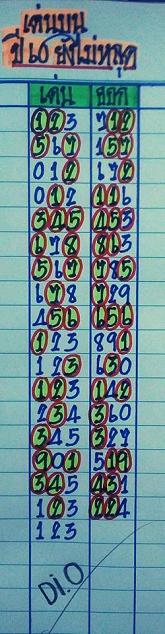 เด่นบน
ปี 60 ยังไม่หลุด
เด่น ออก
123 712
567 157
012 672
012 116
345 453
678 863
567 785
678 729
456 656
123 891
123 630
123 142
234 360
345 327
901 519
345 431
123 224
123
Di.O